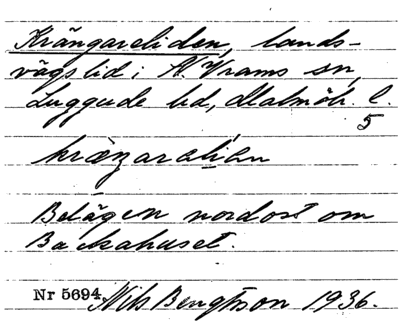 Krångareliden, lands-
vägslid i N. Vrams sn,
Luggude hd, Malmöh. l.
5
Belägen nordost om
Backahuset.
Nr 5694. Nils Bengtsson 1936.